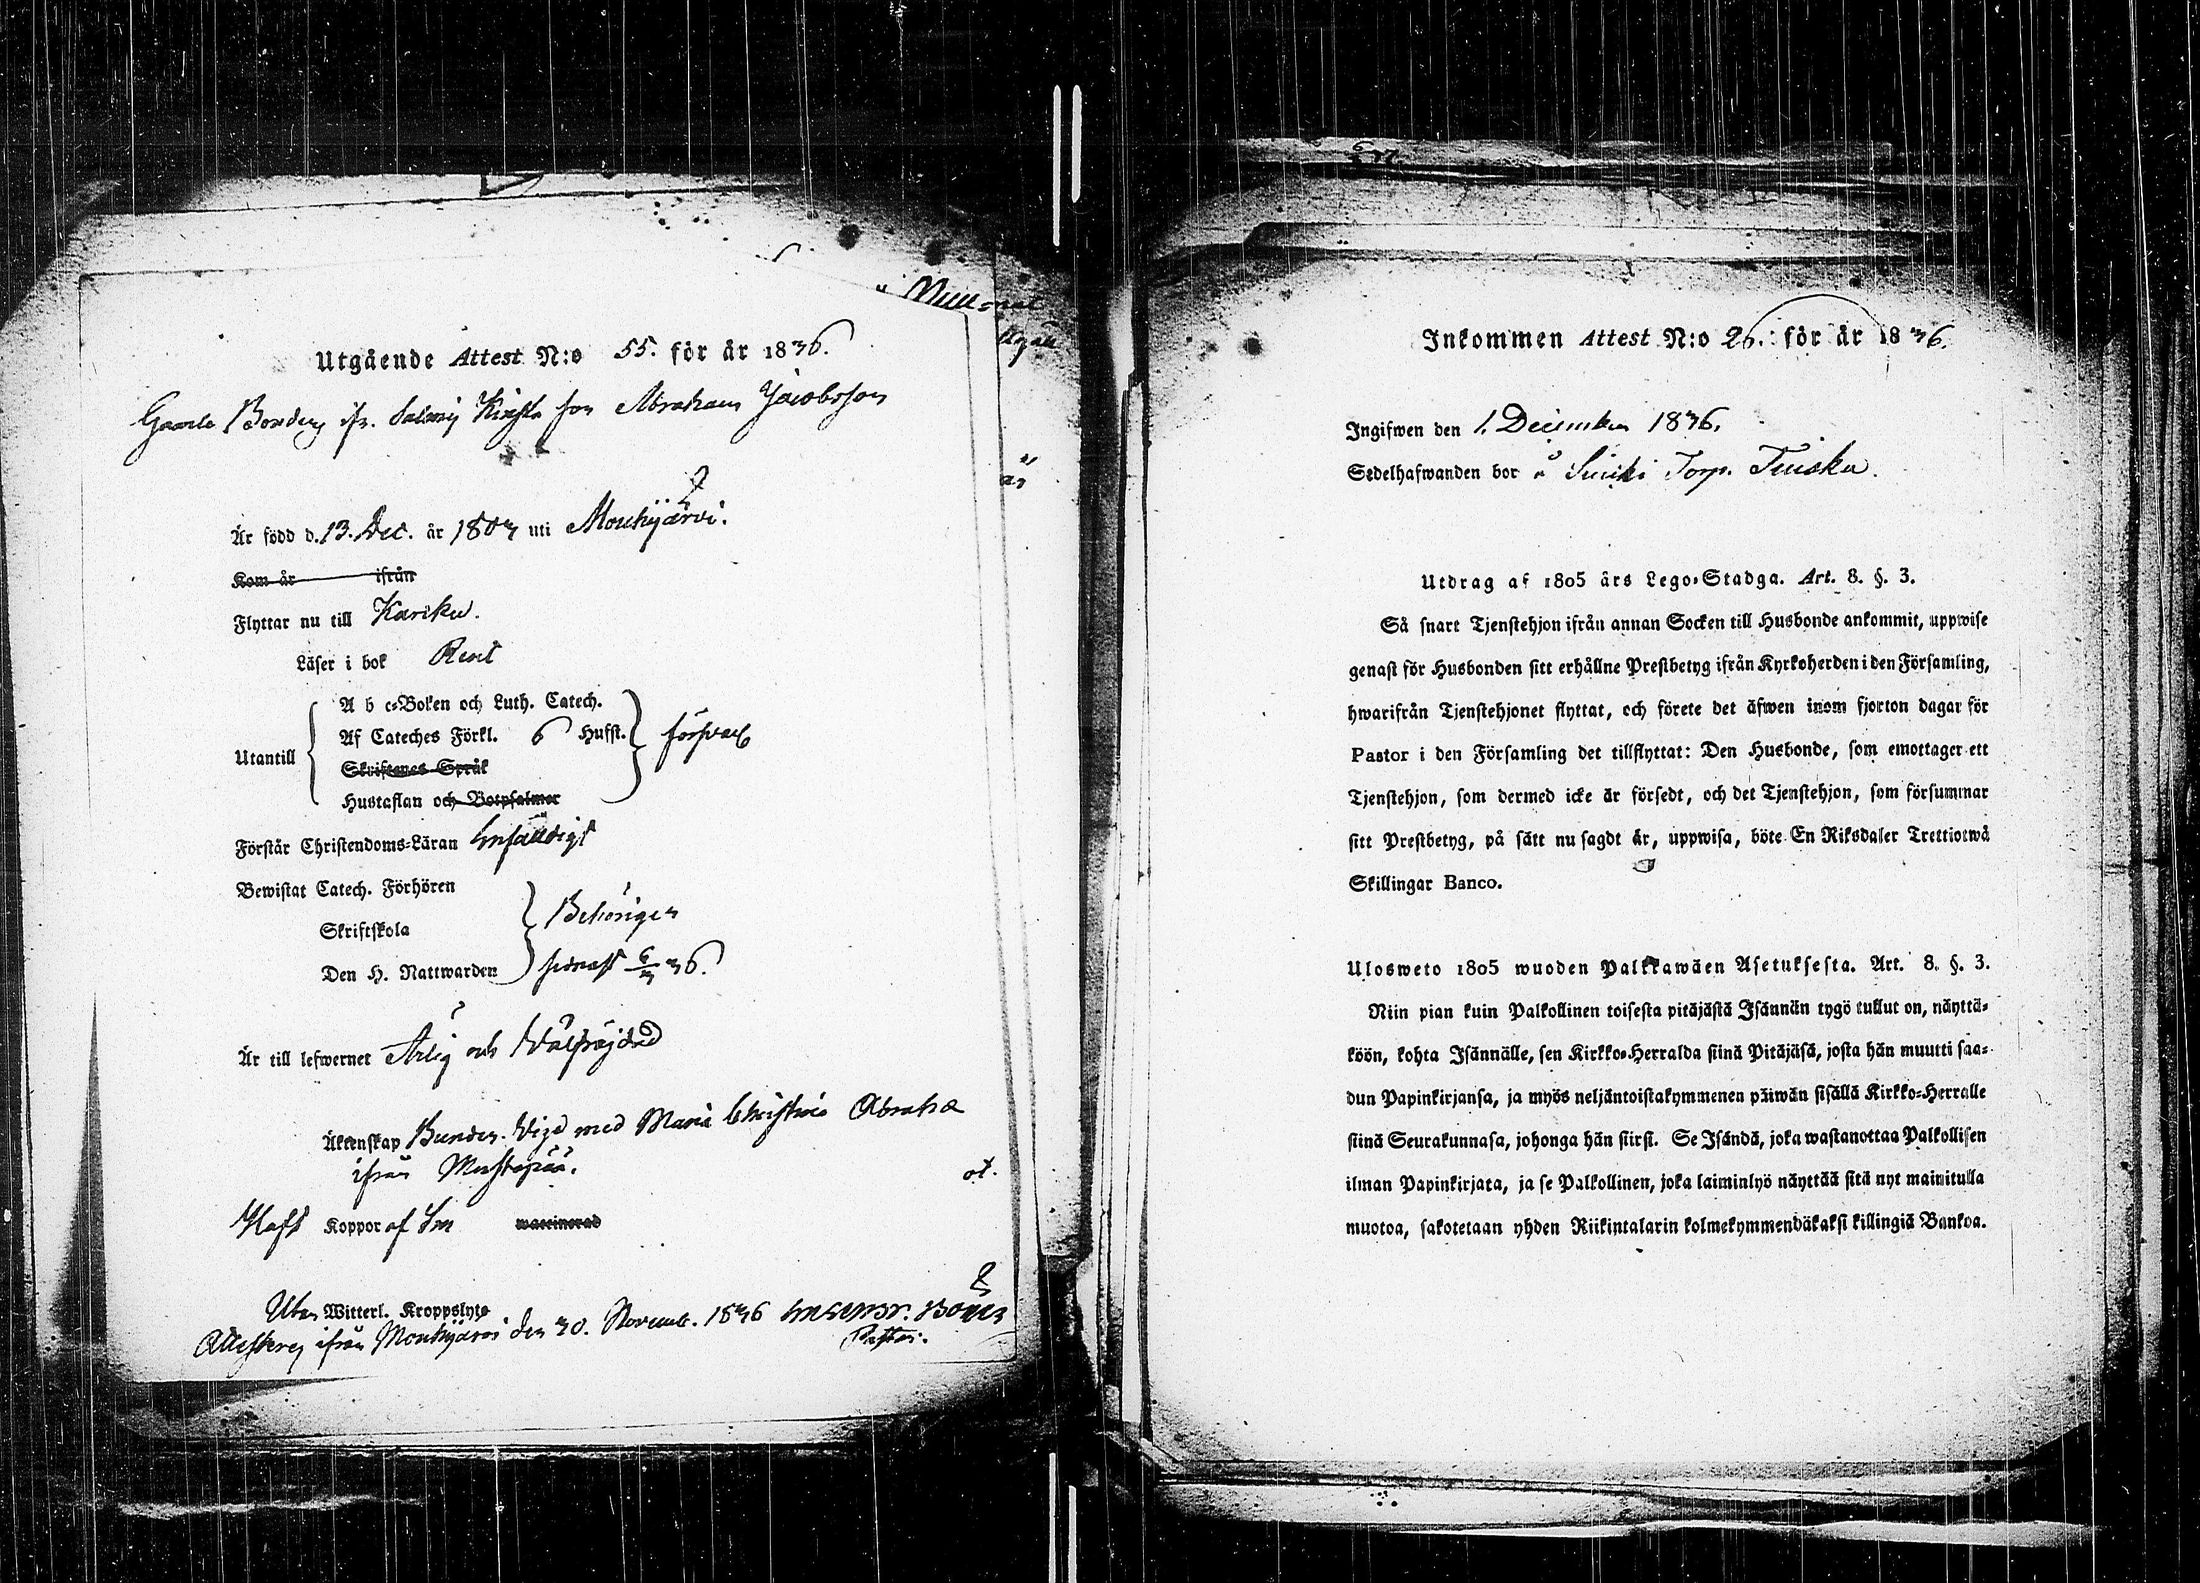 Utgående Attest N:o 55. för år 1836.
Gamle Bonden ifr. Salmij Abraham Jacobsson
Är född d. 13. Dec. år 1803 uti Mouhijärvi.
Kom år ifrån
Flyttar nu till Kariku.
Läser i bok Rent
Utantill
A b c-Boken och Luth. Catech.
Af Cateches Förkl. 6 Hufst. försvarl
Skriftenes Språk
Hustaflan och Botpsalmer
Förstår Christendoms-Läran Enfaldigt
Bewistat Catech. Förhören
Skriftskola Behörigen
Den H. Nattwarden sednast 6/3 36.
Är till lefwernet Ärlig och Wälfräjdad
Äktenskap Bunden. Vigd med Maria Christina Abrah
ifrån Mustapää.
Haft Koppor af Sm waccinerad
Utan Witterl. Kroppslyte
Attesterej ifrån Mouhijärvi den 30. Novemb. 1836
Pastor.
Inkommen Attest N:o 26. för år 1836.
Ingifwen den 1. December 1836.
Sedelhafwanden bor å Suiki Torp. Tuiska.
Utdrag af 1805 års Lego-Stadga. Art. 8. §. 3.
Så snart Tjenstehjon ifrån annan Socken till Husbonde ankommit, uppwise
genast för Husbonden sitt erhållne Prestbetyg ifrån Kyrkoherden i den Församling,
hwarifrån Tjenstehjonet flyttat, och förete det äfwen inom fjorton dagar för
Pastor i den Församling det tillflyttat: Den Husbonde, som emottager ett
Tjenstehjon, som dermed icke är försedt, och det Tjenstehjon, som försummar
sitt Prestbetyg, på sätt nu sagdt är, uppwisa, böte En Riksdaler Trettiotwå
Skillingar Banco.
Ulosweto 1805 wuoden Palkkawäen Asetuksesta. Art. 8. §. 3.
Niin pian kuin Palkollinen toisesta pitäjästä Isännän tygö tullut on, näyttä-
köön, kohta Isännälle, sen Kirkko-Herralda siinä Pitäjäsä, josta hän muutti saa-
dun Papinkirjansa, ja myös neljäntoistakymmenen päiwän sisällä Kirkko-Herralle
siinä Seurakunnasa, johonga hän siirsi. Se Isändä, joka wastanottaa Palkollisen
ilman Papinkirjata, ja se Palkollinen, joka laiminlyö näyttää sitä nyt mainitulla
muotoa, sakotetaan yhden Riikintalarin kolmekymmendäkaksi killingiä Bankoa.